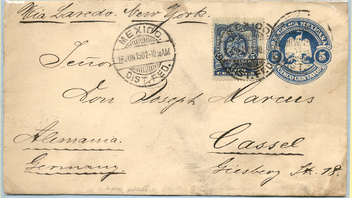 Via Laredo. New York.
MEXICO
18 JUN 1907 10 AM
DIST. FED.
MEXICO
REPUBLICA MEXICANA
5 5
CINCO CENTAVOS
Señor
Don Joseph Marcus
Alemania.
Cassel
Germany
Giesberg Str. 18.